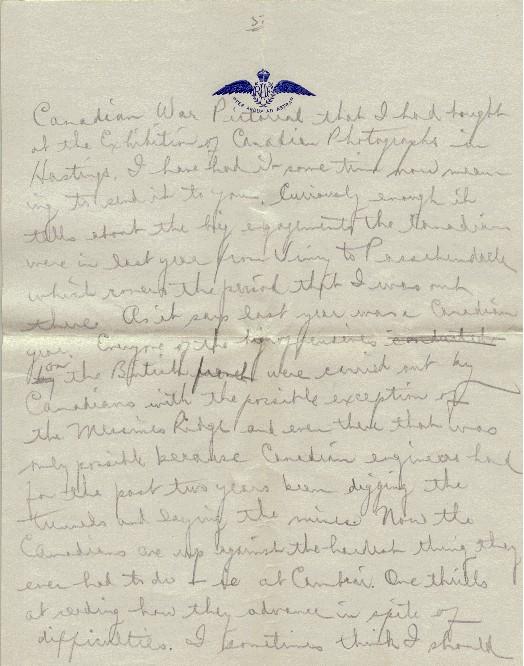 5.
PER ARDUA AD ASTRA
Canadian War Pictorial that I had bought
at the Exhibition of Canadian Photographs in
Hastings. I have had it some time now mean
ing to send it to you. Curiously enough it
tells about the big engagements the Canadians
were in last year from Vimy to Passchendaele
which covers the period that I was out
there. As it says last year was a Canadian
year. Everyone of the big offensives conducted
on the British front were carried out by
Canadians with the possible exception of
the Messines Ridge and even there that was
only possible because Canadian engineers had
for the past two years been digging the
tunnels and laying the mines. Now the
Canadians are up against the hardest thing they
ever had to do + is at Cambrai. One thrills
at reading how they advance in spite of
difficulties. I sometimes think I should